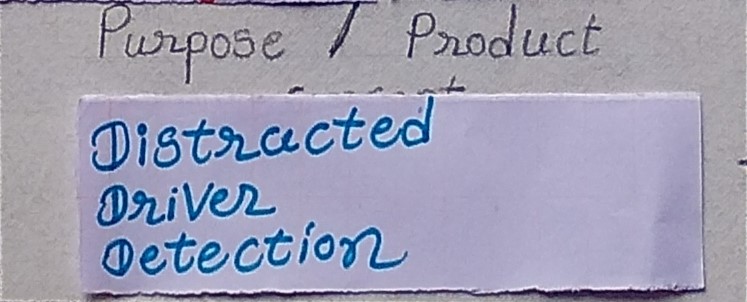 Purpose / Product
Distracted
Driver
Detection